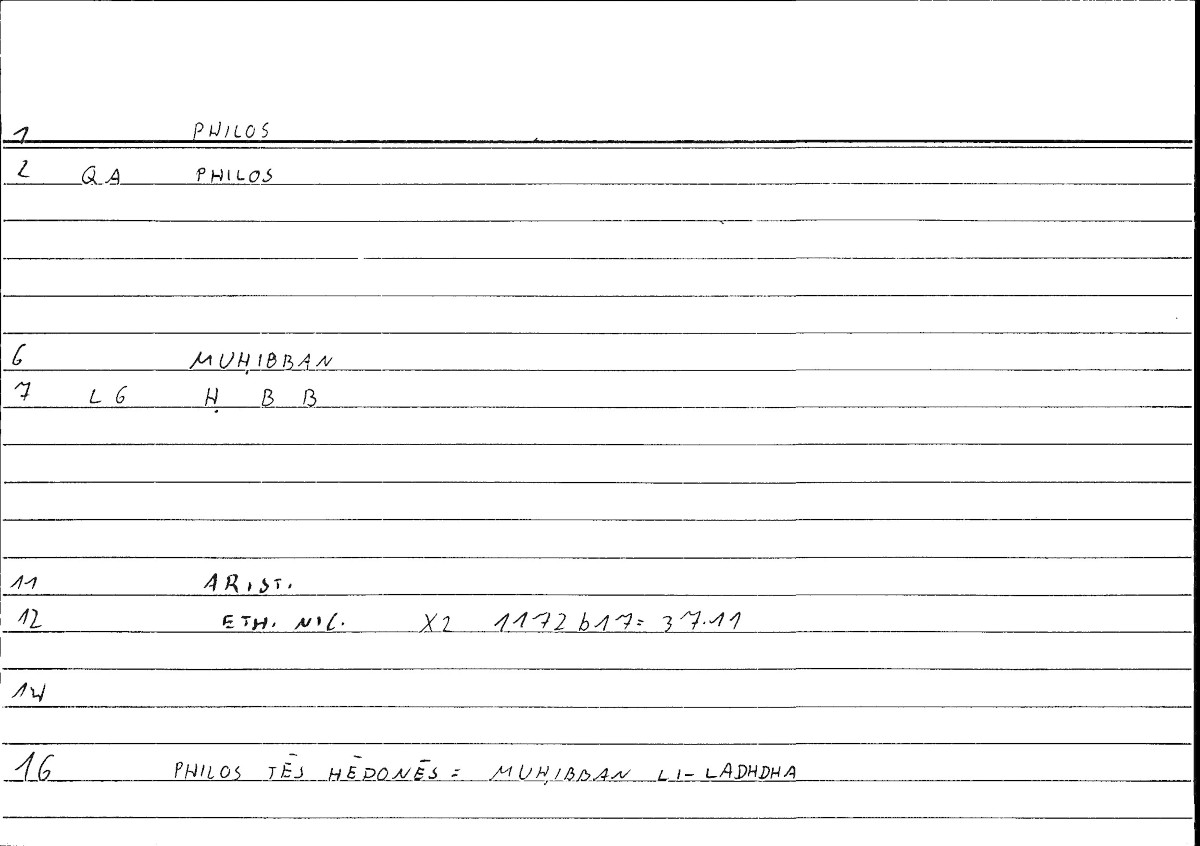 1 PHILOS
2 QA PHILOS
6 MUḤIBBAN
7 LG Ḥ B B
11 ARIST.
12 ETH. NIC. X2 1172b17= 37.11
14
16 PHILOS TĒS HĒDONĒS = MUḤIBBAN LI-LADHDHA